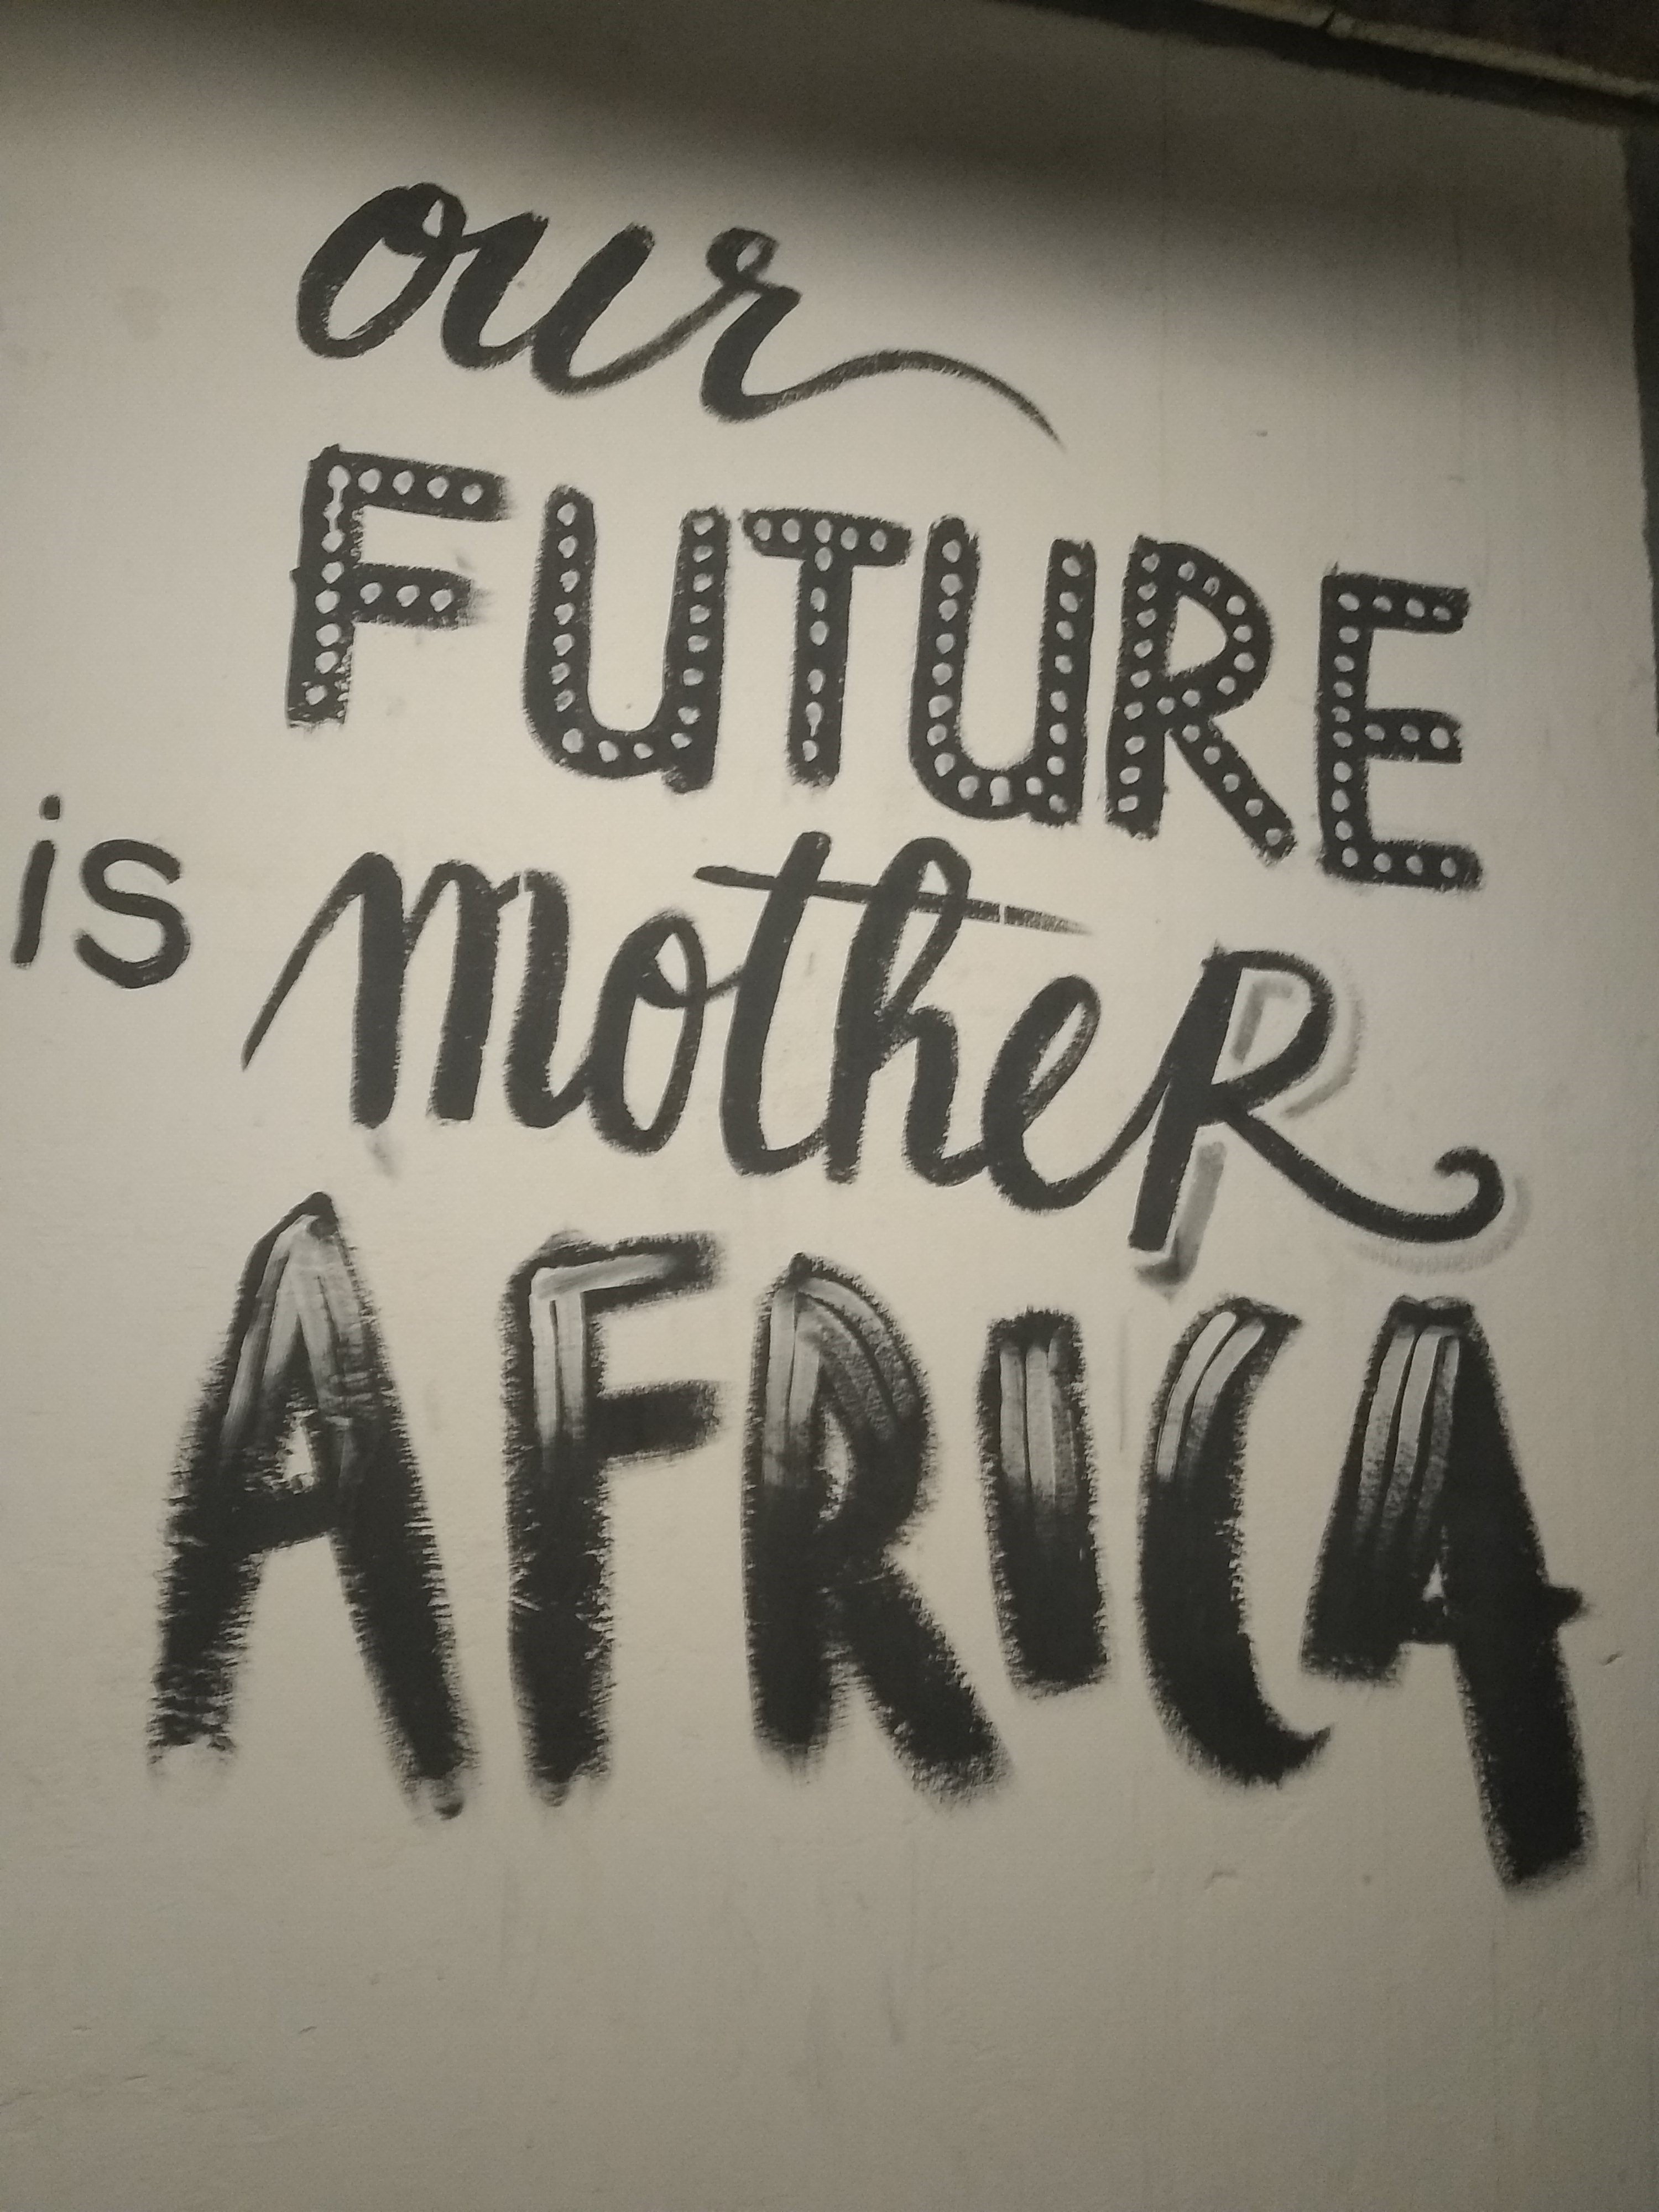 our
FUTURE
is motheR
AFRICA